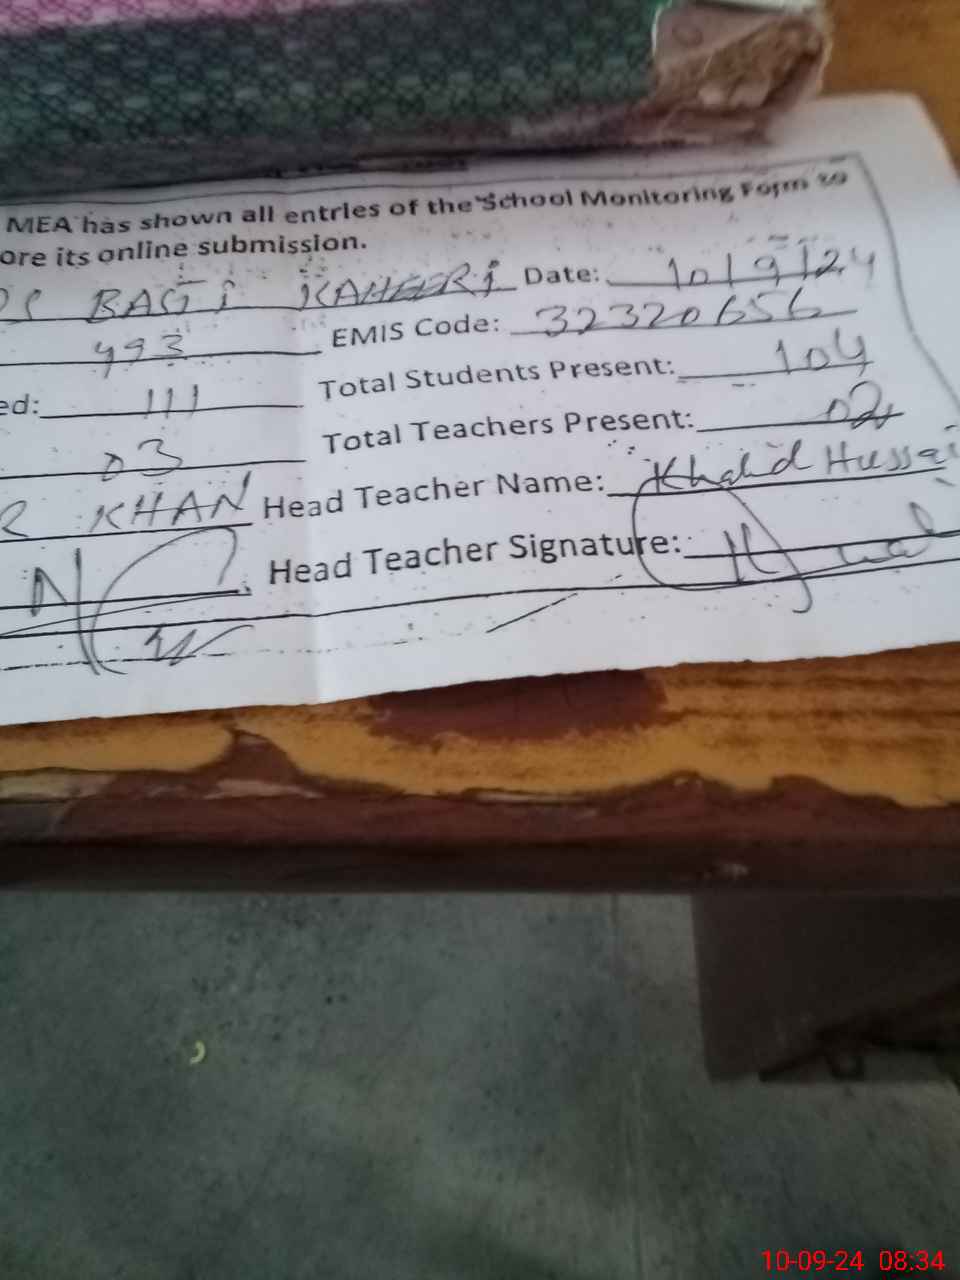 MEA has shown all entries of the School Monitoring Form to
ore its online submission.
BASTI KAHEERI Date: 10/9/24
493 EMIS Code: 32320656
ed: 111 Total Students Present: 104
03 Total Teachers Present: 02
R KHAN Head Teacher Name: Khalid Hussai
Head Teacher Signature:
10-09-24 08:34